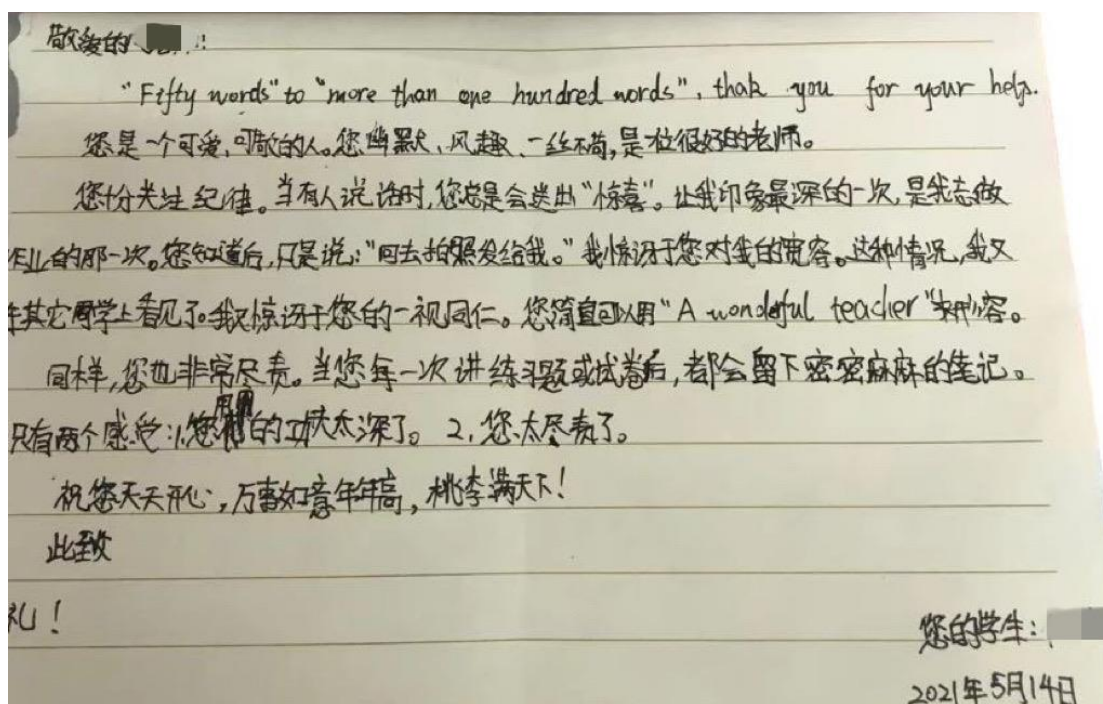 敬爱的
"Fifty words" to "more than one hundred words", thak you for your help.
您是一个可爱,可敬的人。您幽默、风趣、一丝不苟,是位很好的老师。
您十分关注纪律。当有人说话时,您总是会送出"惊喜"。让我印象最深的一次,是我忘做
作业的那一次。您知道后,只是说:"回去拍照发给我。"我惊讶于您对我的宽容。这种情况,我又
在其它同学上看见了。我又惊讶于您的一视同仁。您简直可以用"A wondeful teacher"来形容。
同样,您也非常尽责。当您每一次讲练习题或试卷后,都会留下密密麻麻的笔记。
只有两个感受:1,您用的功夫太深了。2,您太尽责了。
祝您天天开心,万事如意年年高,桃李满天下!
此致
礼!
您的学生:
2021年5月14日